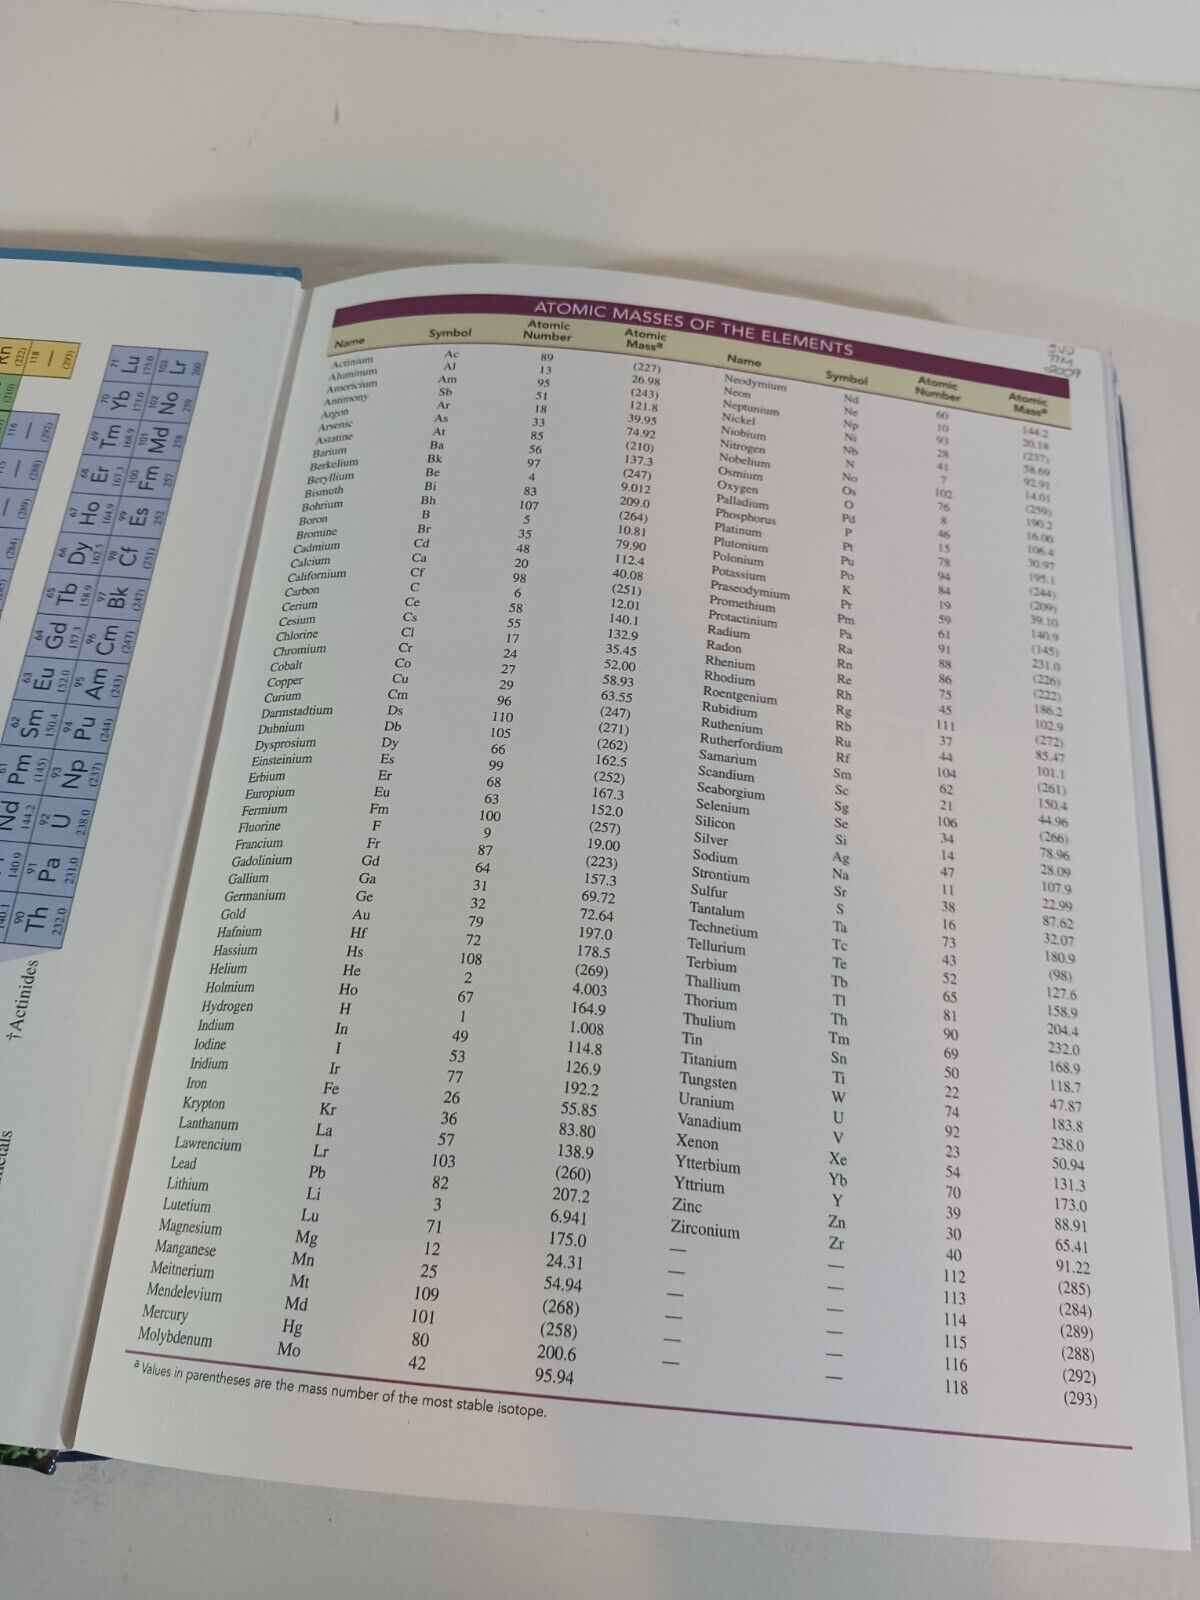 ATOMIC MASSES OF THE ELEMENTS
Name Symbol Atomic Number Atomic Massᵃ Name Symbol Atomic Number Atomic Massᵃ
Actinium Ac 89 (227) Neodymium Nd 60 144.2
Aluminum Al 13 26.98 Neon Ne 10 20.18
Americium Am 95 (243) Neptunium Np 93 (237)
Antimony Sb 51 121.8 Nickel Ni 28 58.69
Argon Ar 18 39.95 Niobium Nb 41 92.91
Arsenic As 33 74.92 Nitrogen N 7 14.01
Astatine At 85 (210) Nobelium No 102 (259)
Barium Ba 56 137.3 Osmium Os 76 190.2
Berkelium Bk 97 (247) Oxygen O 8 16.00
Beryllium Be 4 9.012 Palladium Pd 46 106.4
Bismuth Bi 83 209.0 Phosphorus P 15 30.97
Bohrium Bh 107 (264) Platinum Pt 78 195.1
Boron B 5 10.81 Plutonium Pu 94 (244)
Bromine Br 35 79.90 Polonium Po 84 (209)
Cadmium Cd 48 112.4 Potassium K 19 39.10
Calcium Ca 20 40.08 Praseodymium Pr 59 140.9
Californium Cf 98 (251) Promethium Pm 61 (145)
Carbon C 6 12.01 Protactinium Pa 91 231.0
Cerium Ce 58 140.1 Radium Ra 88 (226)
Cesium Cs 55 132.9 Radon Rn 86 (222)
Chlorine Cl 17 35.45 Rhenium Re 75 186.2
Chromium Cr 24 52.00 Rhodium Rh 45 102.9
Cobalt Co 27 58.93 Roentgenium Rg 111 (272)
Copper Cu 29 63.55 Rubidium Rb 37 85.47
Curium Cm 96 (247) Ruthenium Ru 44 101.1
Darmstadtium Ds 110 (271) Rutherfordium Rf 104 (261)
Dubnium Db 105 (262) Samarium Sm 62 150.4
Dysprosium Dy 66 162.5 Scandium Sc 21 44.96
Einsteinium Es 99 (252) Seaborgium Sg 106 (266)
Erbium Er 68 167.3 Selenium Se 34 78.96
Europium Eu 63 152.0 Silicon Si 14 28.09
Fermium Fm 100 (257) Silver Ag 47 107.9
Fluorine F 9 19.00 Sodium Na 11 22.99
Francium Fr 87 (223) Strontium Sr 38 87.62
Gadolinium Gd 64 157.3 Sulfur S 16 32.07
Gallium Ga 31 69.72 Tantalum Ta 73 180.9
Germanium Ge 32 72.64 Technetium Tc 43 (98)
Gold Au 79 197.0 Tellurium Te 52 127.6
Hafnium Hf 72 178.5 Terbium Tb 65 158.9
Hassium Hs 108 (269) Thallium Tl 81 204.4
Helium He 2 4.003 Thorium Th 90 232.0
Holmium Ho 67 164.9 Thulium Tm 69 168.9
Hydrogen H 1 1.008 Tin Sn 50 118.7
Indium In 49 114.8 Titanium Ti 22 47.87
Iodine I 53 126.9 Tungsten W 74 183.8
Iridium Ir 77 192.2 Uranium U 92 238.0
Iron Fe 26 55.85 Vanadium V 23 50.94
Krypton Kr 36 83.80 Xenon Xe 54 131.3
Lanthanum La 57 138.9 Ytterbium Yb 70 173.0
Lawrencium Lr 103 (260) Yttrium Y 39 88.91
Lead Pb 82 207.2 Zinc Zn 30 65.41
Lithium Li 3 6.941 Zirconium Zr 40 91.22
Lutetium Lu 71 175.0 — — 112 (285)
Magnesium Mg 12 24.31 — — 113 (284)
Manganese Mn 25 54.94 — — 114 (289)
Meitnerium Mt 109 (268) — — 115 (288)
Mendelevium Md 101 (258) — — 116 (292)
Mercury Hg 80 200.6 — — 118 (293)
Molybdenum Mo 42 95.94
ᵃ Values in parentheses are the mass number of the most stable isotope.
2009
Rn (222)
118 — (293)
(210)
116 — (292)
(288)
(289)
(284)
140.1
140.9
Nd 144.2
61 Pm (145)
62 Sm 150.4
63 Eu 152.0
64 Gd 157.3
65 Tb 158.9
66 Dy 162.5
67 Ho 164.9
68 Er 167.3
69 Tm 168.9
70 Yb 173.0
71 Lu 175.0
90 Th 232.0
91 Pa 231.0
92 U 238.0
93 Np (237)
94 Pu (244)
95 Am (243)
96 Cm (247)
97 Bk (247)
98 Cf (251)
99 Es 252
100 Fm 257
101 Md 258
102 No 259
103 Lr 260
†Actinides